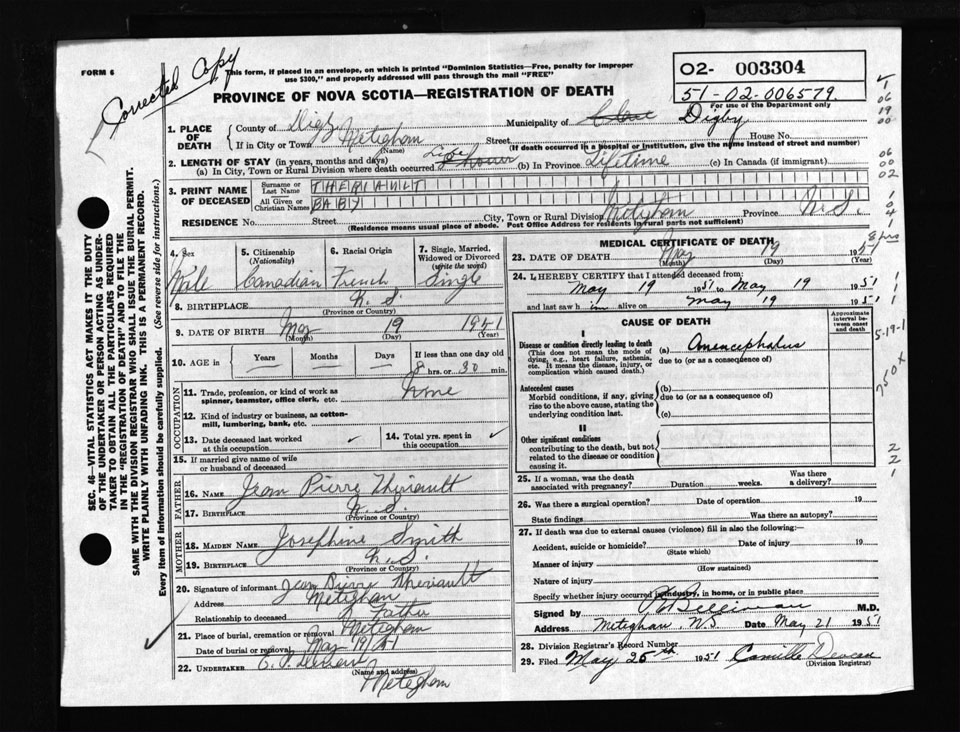 FORM 6
Corrected Copy
This form, if placed in an envelope, on which is printed "Dominion Statistics—Free, penalty for improper
use $300," and properly addressed will pass through the mail "FREE"
PROVINCE OF NOVA SCOTIA—REGISTRATION OF DEATH
02- 003304
51-02-006579
For use of the Department only
1. PLACE OF DEATH
County of Digby Municipality of Clare Digby
If in City or Town Meteghan Street House No.
(Name) (If death occurred in a hospital or institution, give the name instead of street and number)
2. LENGTH OF STAY (in years, months and days)
(a) In City, Town or Rural Division where death occurred Life (b) In Province Lifetime (c) In Canada (if immigrant)
3. PRINT NAME OF DECEASED
Surname or Last Name THERIAULT
All Given or Christian Names BABY
RESIDENCE No. Street City, Town or Rural Division Meteghan Province N.S.
(Residence means usual place of abode. Post Office Address for residents of rural parts not sufficient)
4. Sex Male
5. Citizenship (Nationality) Canadian
6. Racial Origin French
7. Single, Married, Widowed or Divorced (write the word) Single
8. BIRTHPLACE N.S.
(Province or Country)
9. DATE OF BIRTH May 19 1951
(Month) (Day) (Year)
10. AGE in Years Months Days If less than one day old
8 hrs. or 30 min.
OCCUPATION
11. Trade, profession, or kind of work as
spinner, teamster, office clerk, etc. none
12. Kind of industry or business, as cotten-
mill, lumbering, bank, etc.
13. Date deceased last worked
at this occupation ✓
14. Total yrs. spent in
this occupation ✓
15. If married give name of wife
or husband of deceased
FATHER
16. NAME Jean Pierre Theriault
17. BIRTHPLACE N.S.
(Province or Country)
MOTHER
18. MAIDEN NAME Josephine Smith
19. BIRTHPLACE N.S.
(Province or Country)
20. Signature of informant Jean Pierre Theriault
Address Meteghan
Relationship to deceased Father
21. Place of burial, cremation or removal Meteghan
Date of burial or removal May 19/51
22. UNDERTAKER
(Name and address)
Meteghan
MEDICAL CERTIFICATE OF DEATH
23. DATE OF DEATH May 19 1951
(Month) (Day) (Year)
8 hrs
24. I HEREBY CERTIFY that I attended deceased from
May 19 1951 to May 19 1951
and last saw him alive on May 19 1951
CAUSE OF DEATH
Approximate interval between onset and death
I
Disease or condition directly leading to death
(This does not mean the mode of
dying, e.g., heart failure, asthenia,
etc. It means the disease, injury, or
complication which caused death.)
(a) Anencephalus
due to (or as a consequence of)
Antecedent causes
Morbid conditions, if any, giving
rise to the above cause, stating the
underlying condition last.
(b)
due to (or as a consequence of)
(c)
II
Other significant conditions
contributing to the death, but not
related to the disease or condition
causing it.
25. If a woman, was the death
associated with pregnancy? Duration weeks. Was there
a delivery?
26. Was there a surgical operation? Date of operation 19
State findings Was there an autopsy?
27. If death was due to external causes (violence) fill in also the following:—
Accident, suicide or homicide? Date of injury 19
(State which)
Manner of injury
(How sustained)
Nature of injury
Specify whether injury occurred in industry, in home, or in public place
Signed by P E Belliveau M.D.
Address Meteghan, N.S. Date May 21 1951
28. Division Registrar's Record Number
29. Filed May 25th 1951 Camille
(Division Registrar)
5-19-1
750x
2
2
1
SEC. 46—VITAL STATISTICS ACT MAKES IT THE DUTY
OF THE UNDERTAKER OR PERSON ACTING AS UNDER-
TAKER TO OBTAIN ALL THE PARTICULARS REQUIRED
IN THE "REGISTRATION OF DEATH" AND TO FILE THE
SAME WITH THE DIVISION REGISTRAR WHO SHALL ISSUE THE BURIAL PERMIT.
WRITE PLAINLY WITH UNFADING INK. THIS IS A PERMANENT RECORD.
Every item of information should be carefully supplied. (See reverse side for instructions.)